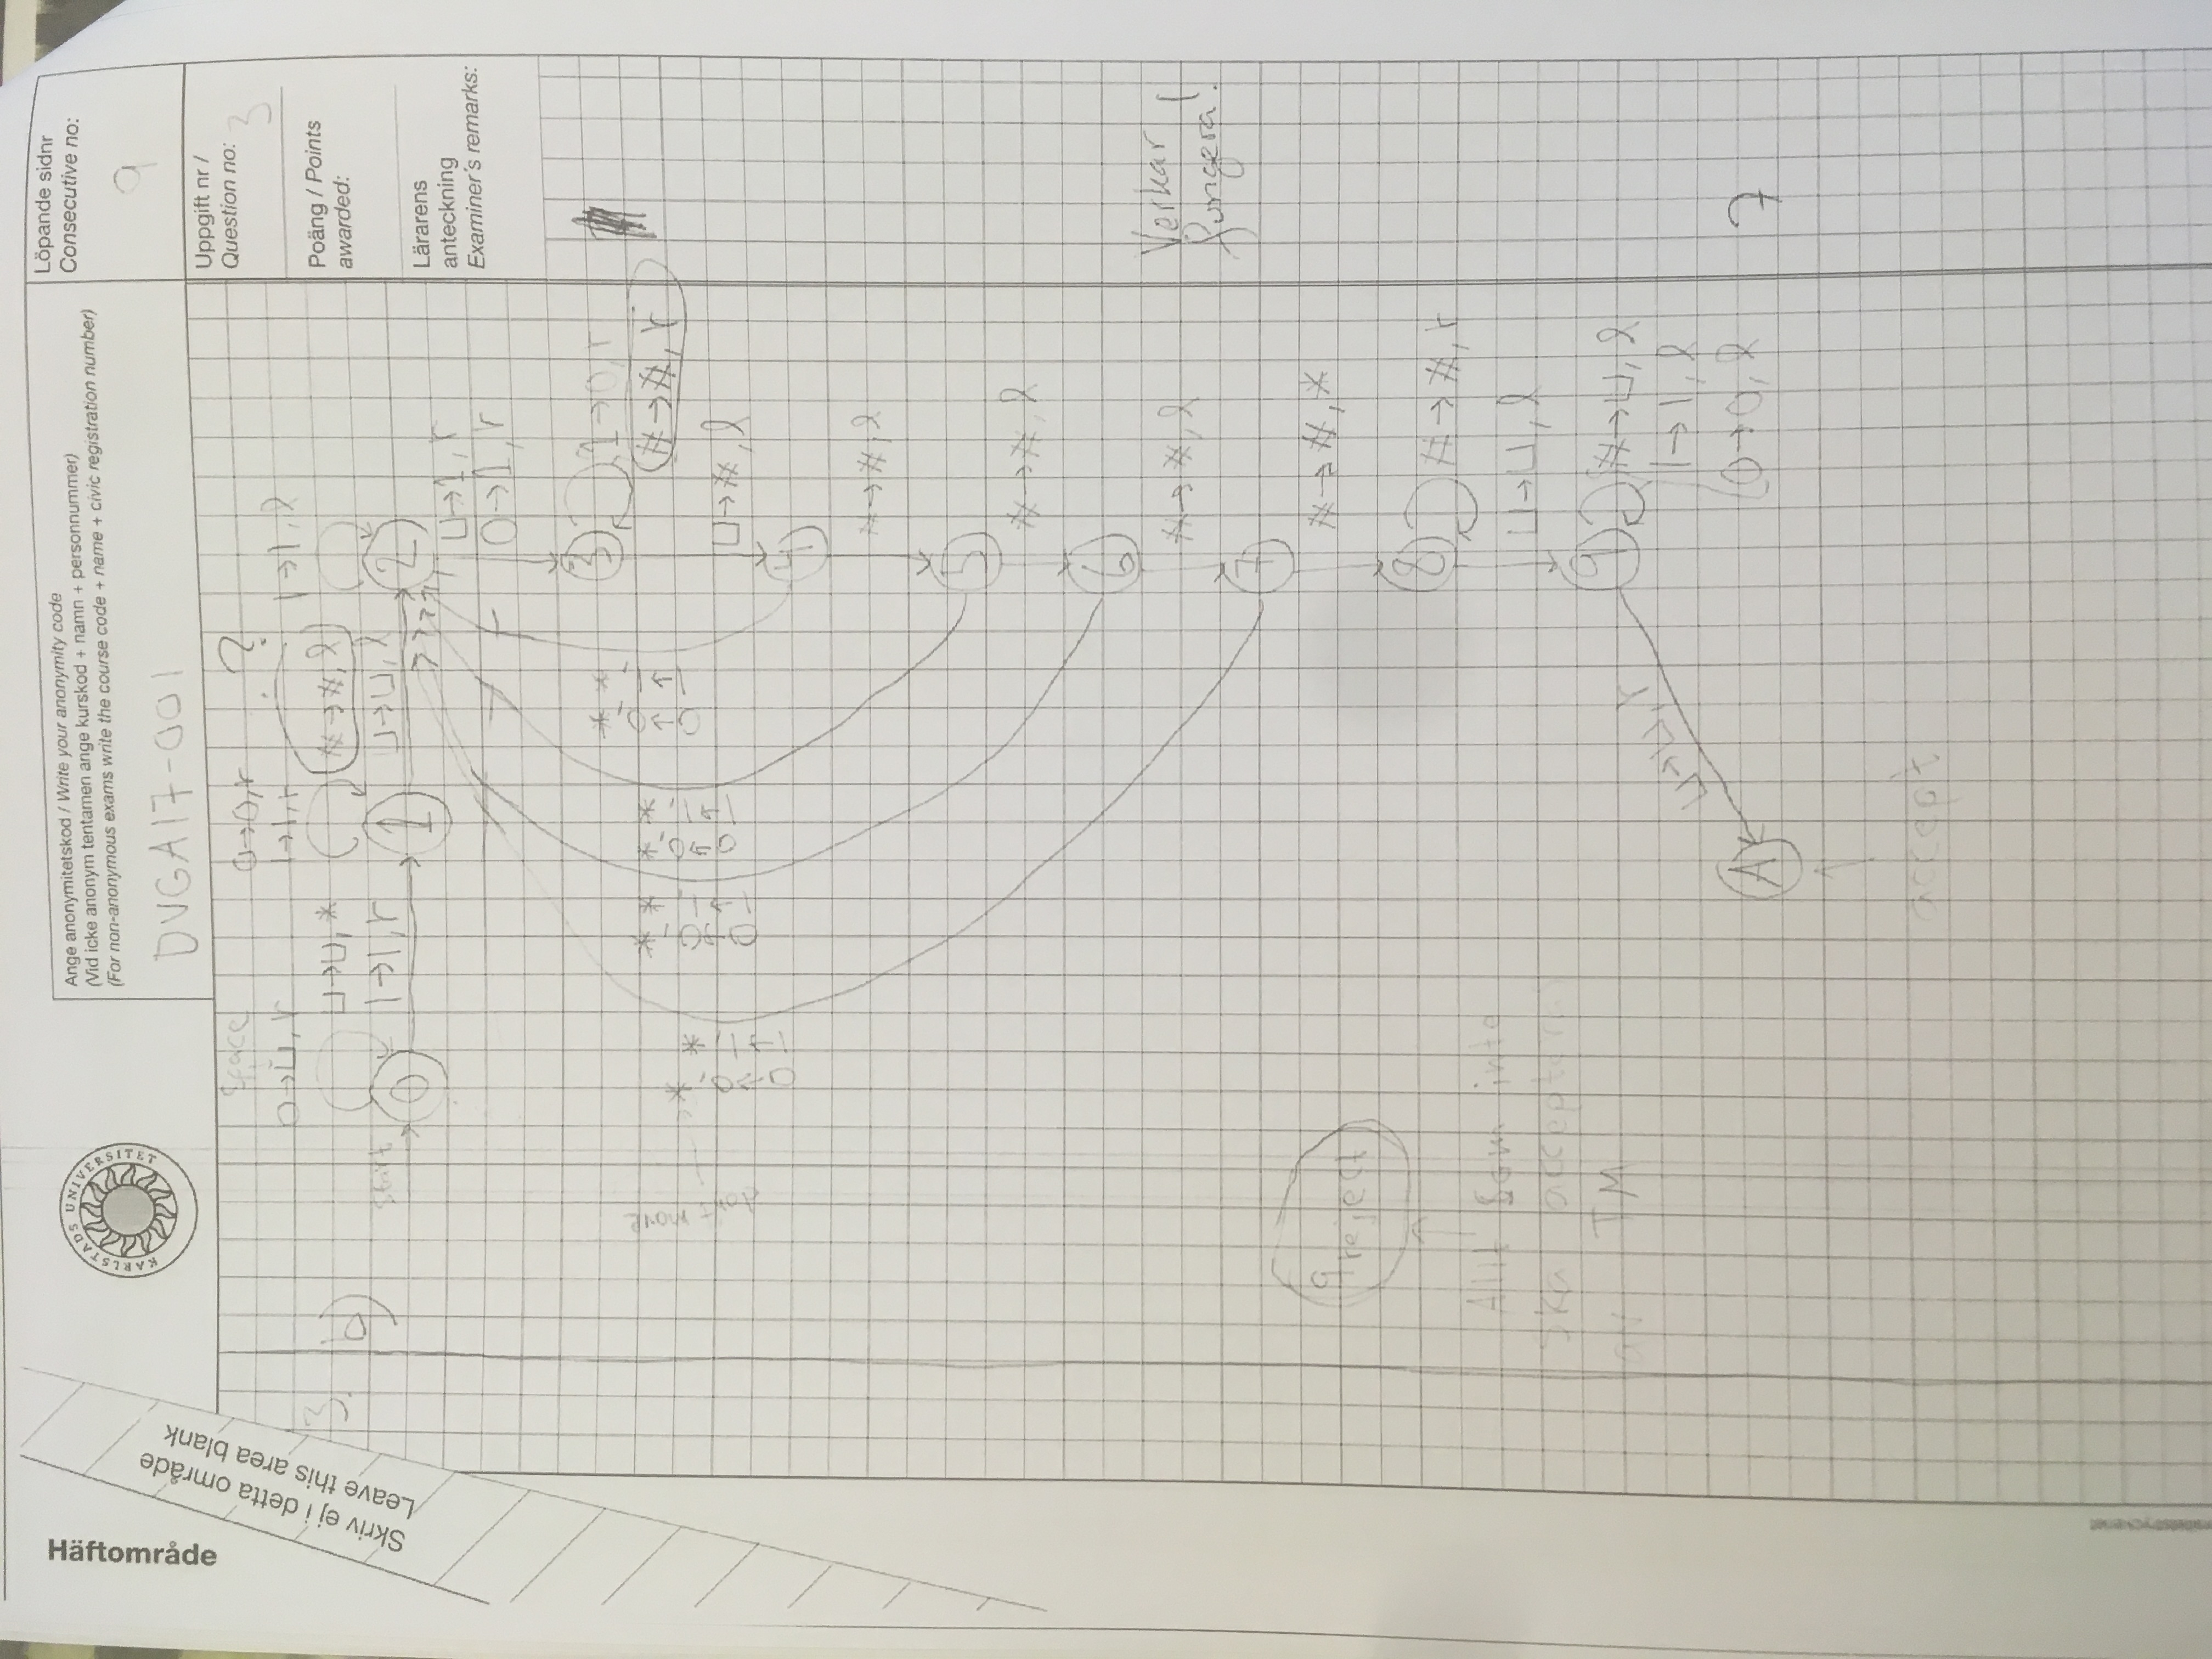 Häftområde
Skriv ej i detta område
Leave this area blank
KARLSTADS UNIVERSITET
Ange anonymitetskod / Write your anonymity code
(Vid icke anonym tentamen ange kurskod + namn + personnummer)
(For non-anonymous exams write the course code + name + civic registration number)
DVGA17-001
Löpande sidnr
Consecutive no:
9
Uppgift nr /
Question no:
3
Poäng / Points
awarded:
Lärarens
anteckning
Examiner's remarks:
3.
b)
space
0→⊔, r
⊔→⊔, *
1→1, r
start
0
0→0, r
1→1, r
1
?
#→#, l
⊔→⊔, l
1→1, l
2
⊔→1, r
0→1, r
3
1→0, r
#→#, r
⊔→#, l
4
0→0, *
1→1, *
0→0, *
1→1, *
0→0, *
1→1, *
0→0, *
1→1, *
dont move
#→#, l
5
#→#, l
6
#→#, l
7
#→#, *
8
#→#, r
⊔→⊔, l
9
#→⊔, l
1→1, l
0→0, l
⊔→⊔, r
A
accept
q reject
Allt som inte
ska accepteras
av TM
Verkar
fungera!
7